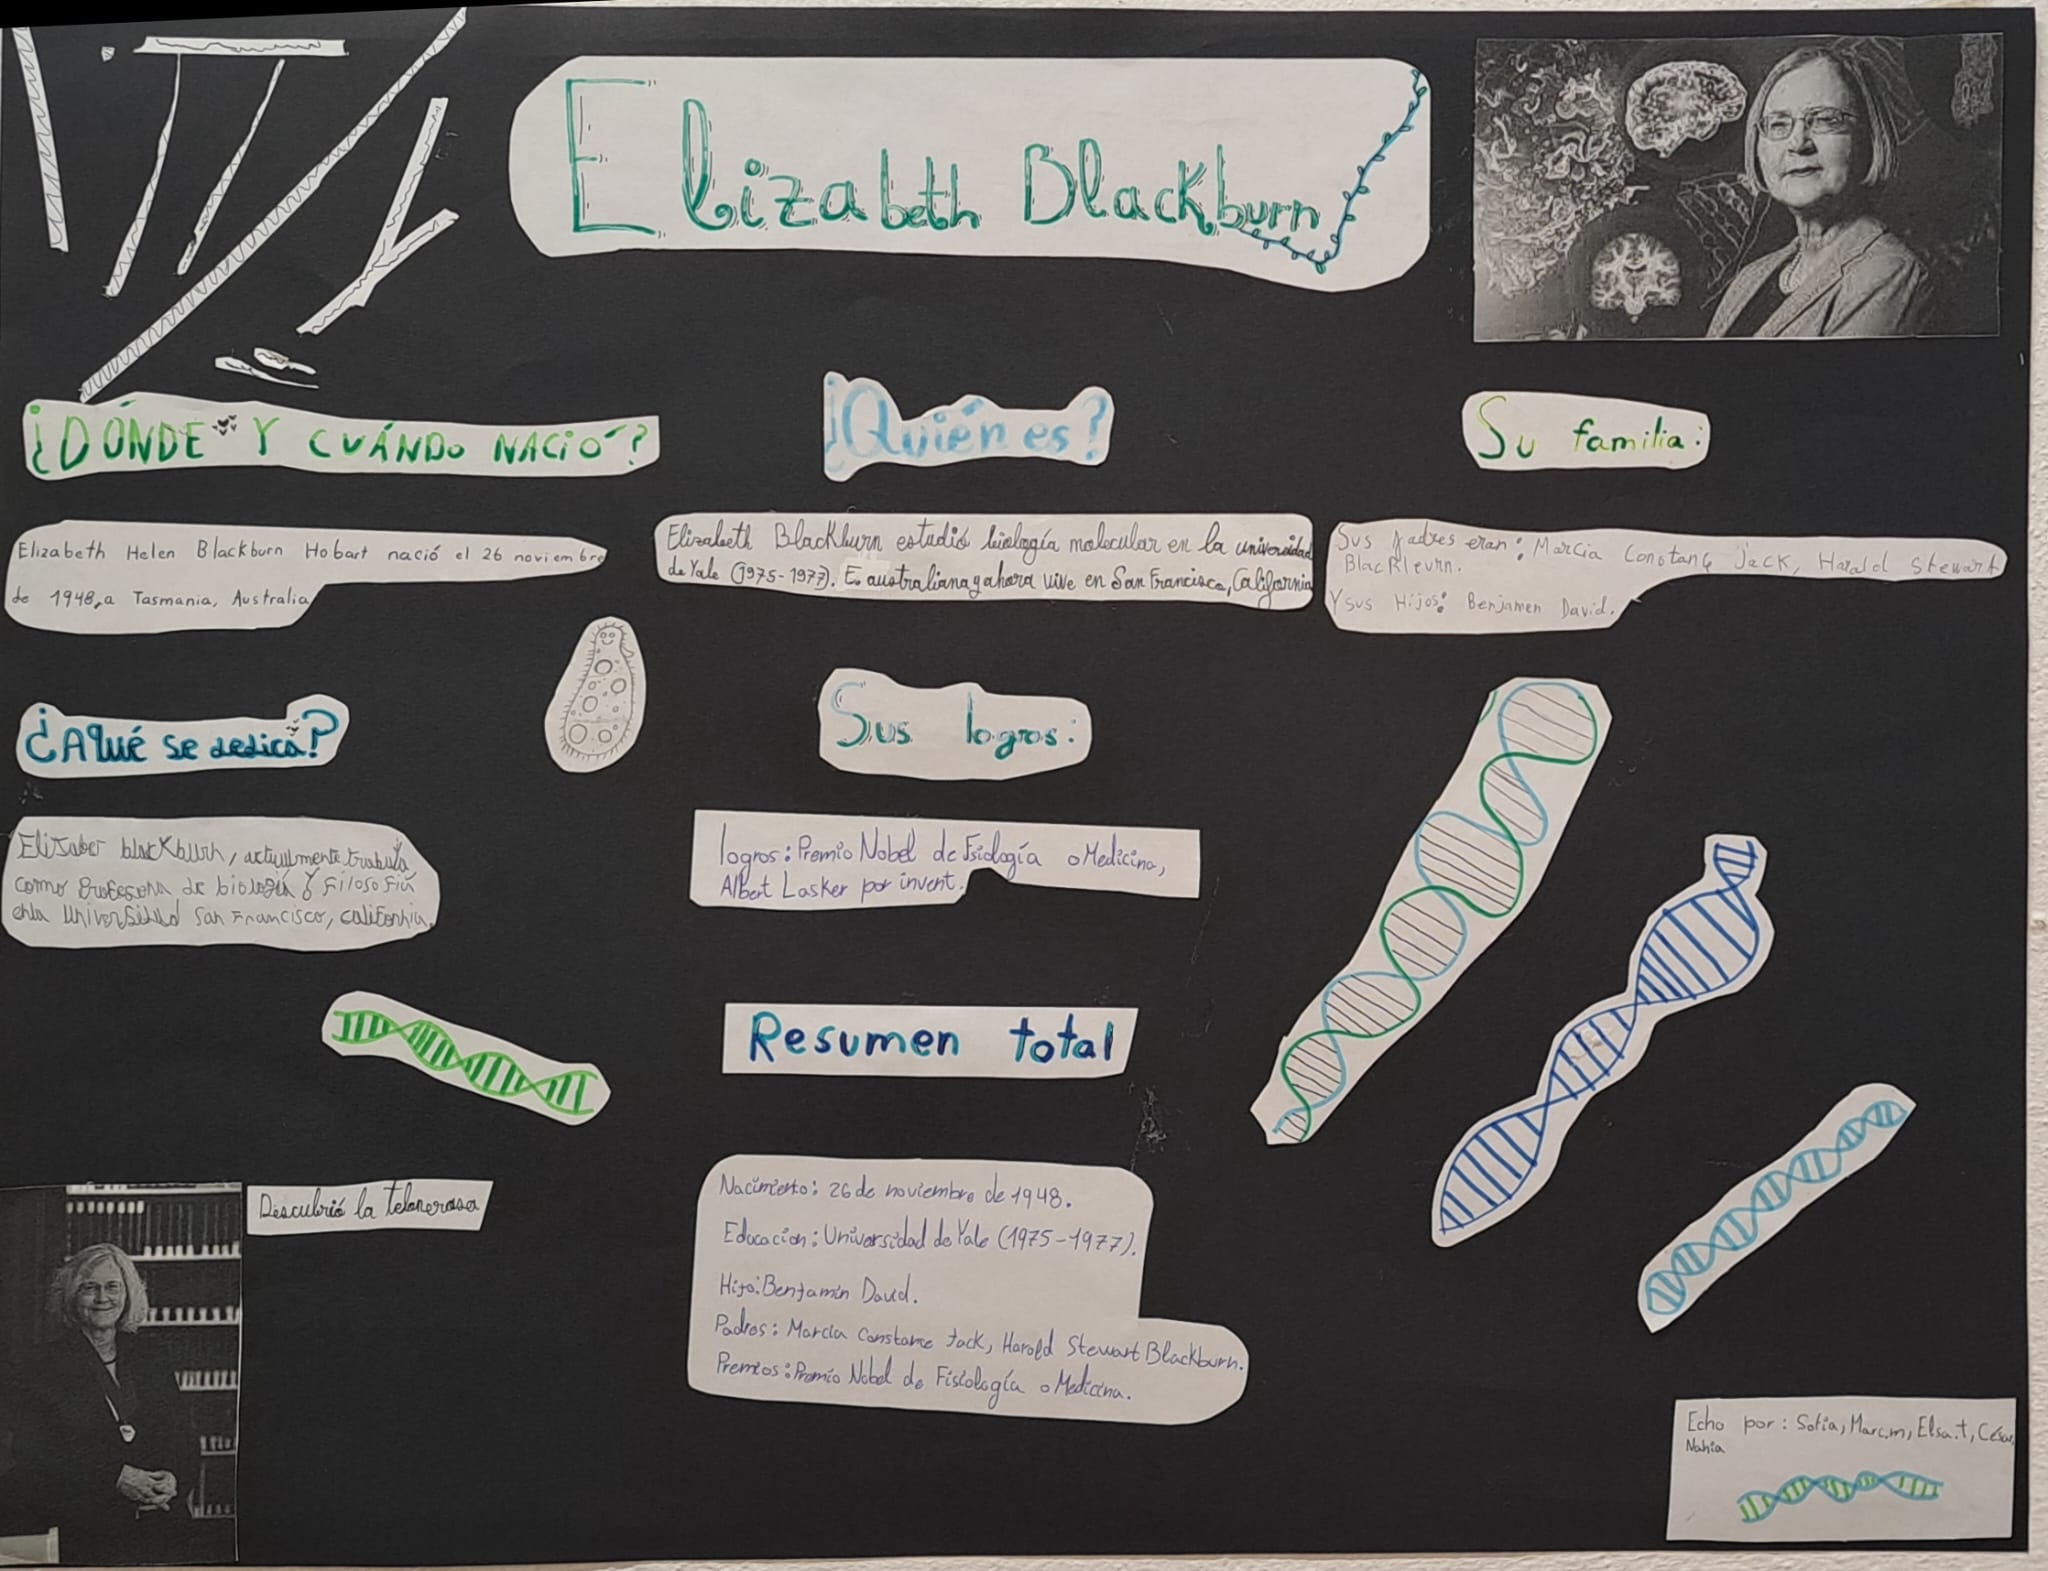 Elizabeth Blackburn
¿DÓNDE Y CUÁNDO NACIÓ?
Elizabeth Helen Blackburn Hobart nació el 26 noviembre
de 1948, a Tasmania, Australia
¿Quién es?
Elizabeth Blackburn estudió biología molecular en la universidad
de Yale (1975-1977). Es australiana y ahora vive en San Francisco, California
Su familia:
Sus padres eran: Marcia Constanç jack, Harald Stewart
Blackleurn.
Y sus Hijos: Benjamen David.
¿A Qué se dedica?
Elizaber blackburn, actuylmente trabaja
como profesora de biología y filosofía
enla Universidad San Francisco, california.
Sus logros:
logros: Premio Nobel de Fsiología o Medicina,
Albert Lasker por invent.
Resumen total
Nacimiento: 26 de noviembre de 1948.
Educacion: Universidad de Yale (1975-1977).
Hijo: Benjamin David.
Padres: Marcia Constance Jack, Harold Stewart Blackburn.
Premios: Premio Nobel de Fisiología o Medicina.
Descubrió la telomerasa
Echo por: Sofia, Marc.m, Elsa.t, César,
Nahia